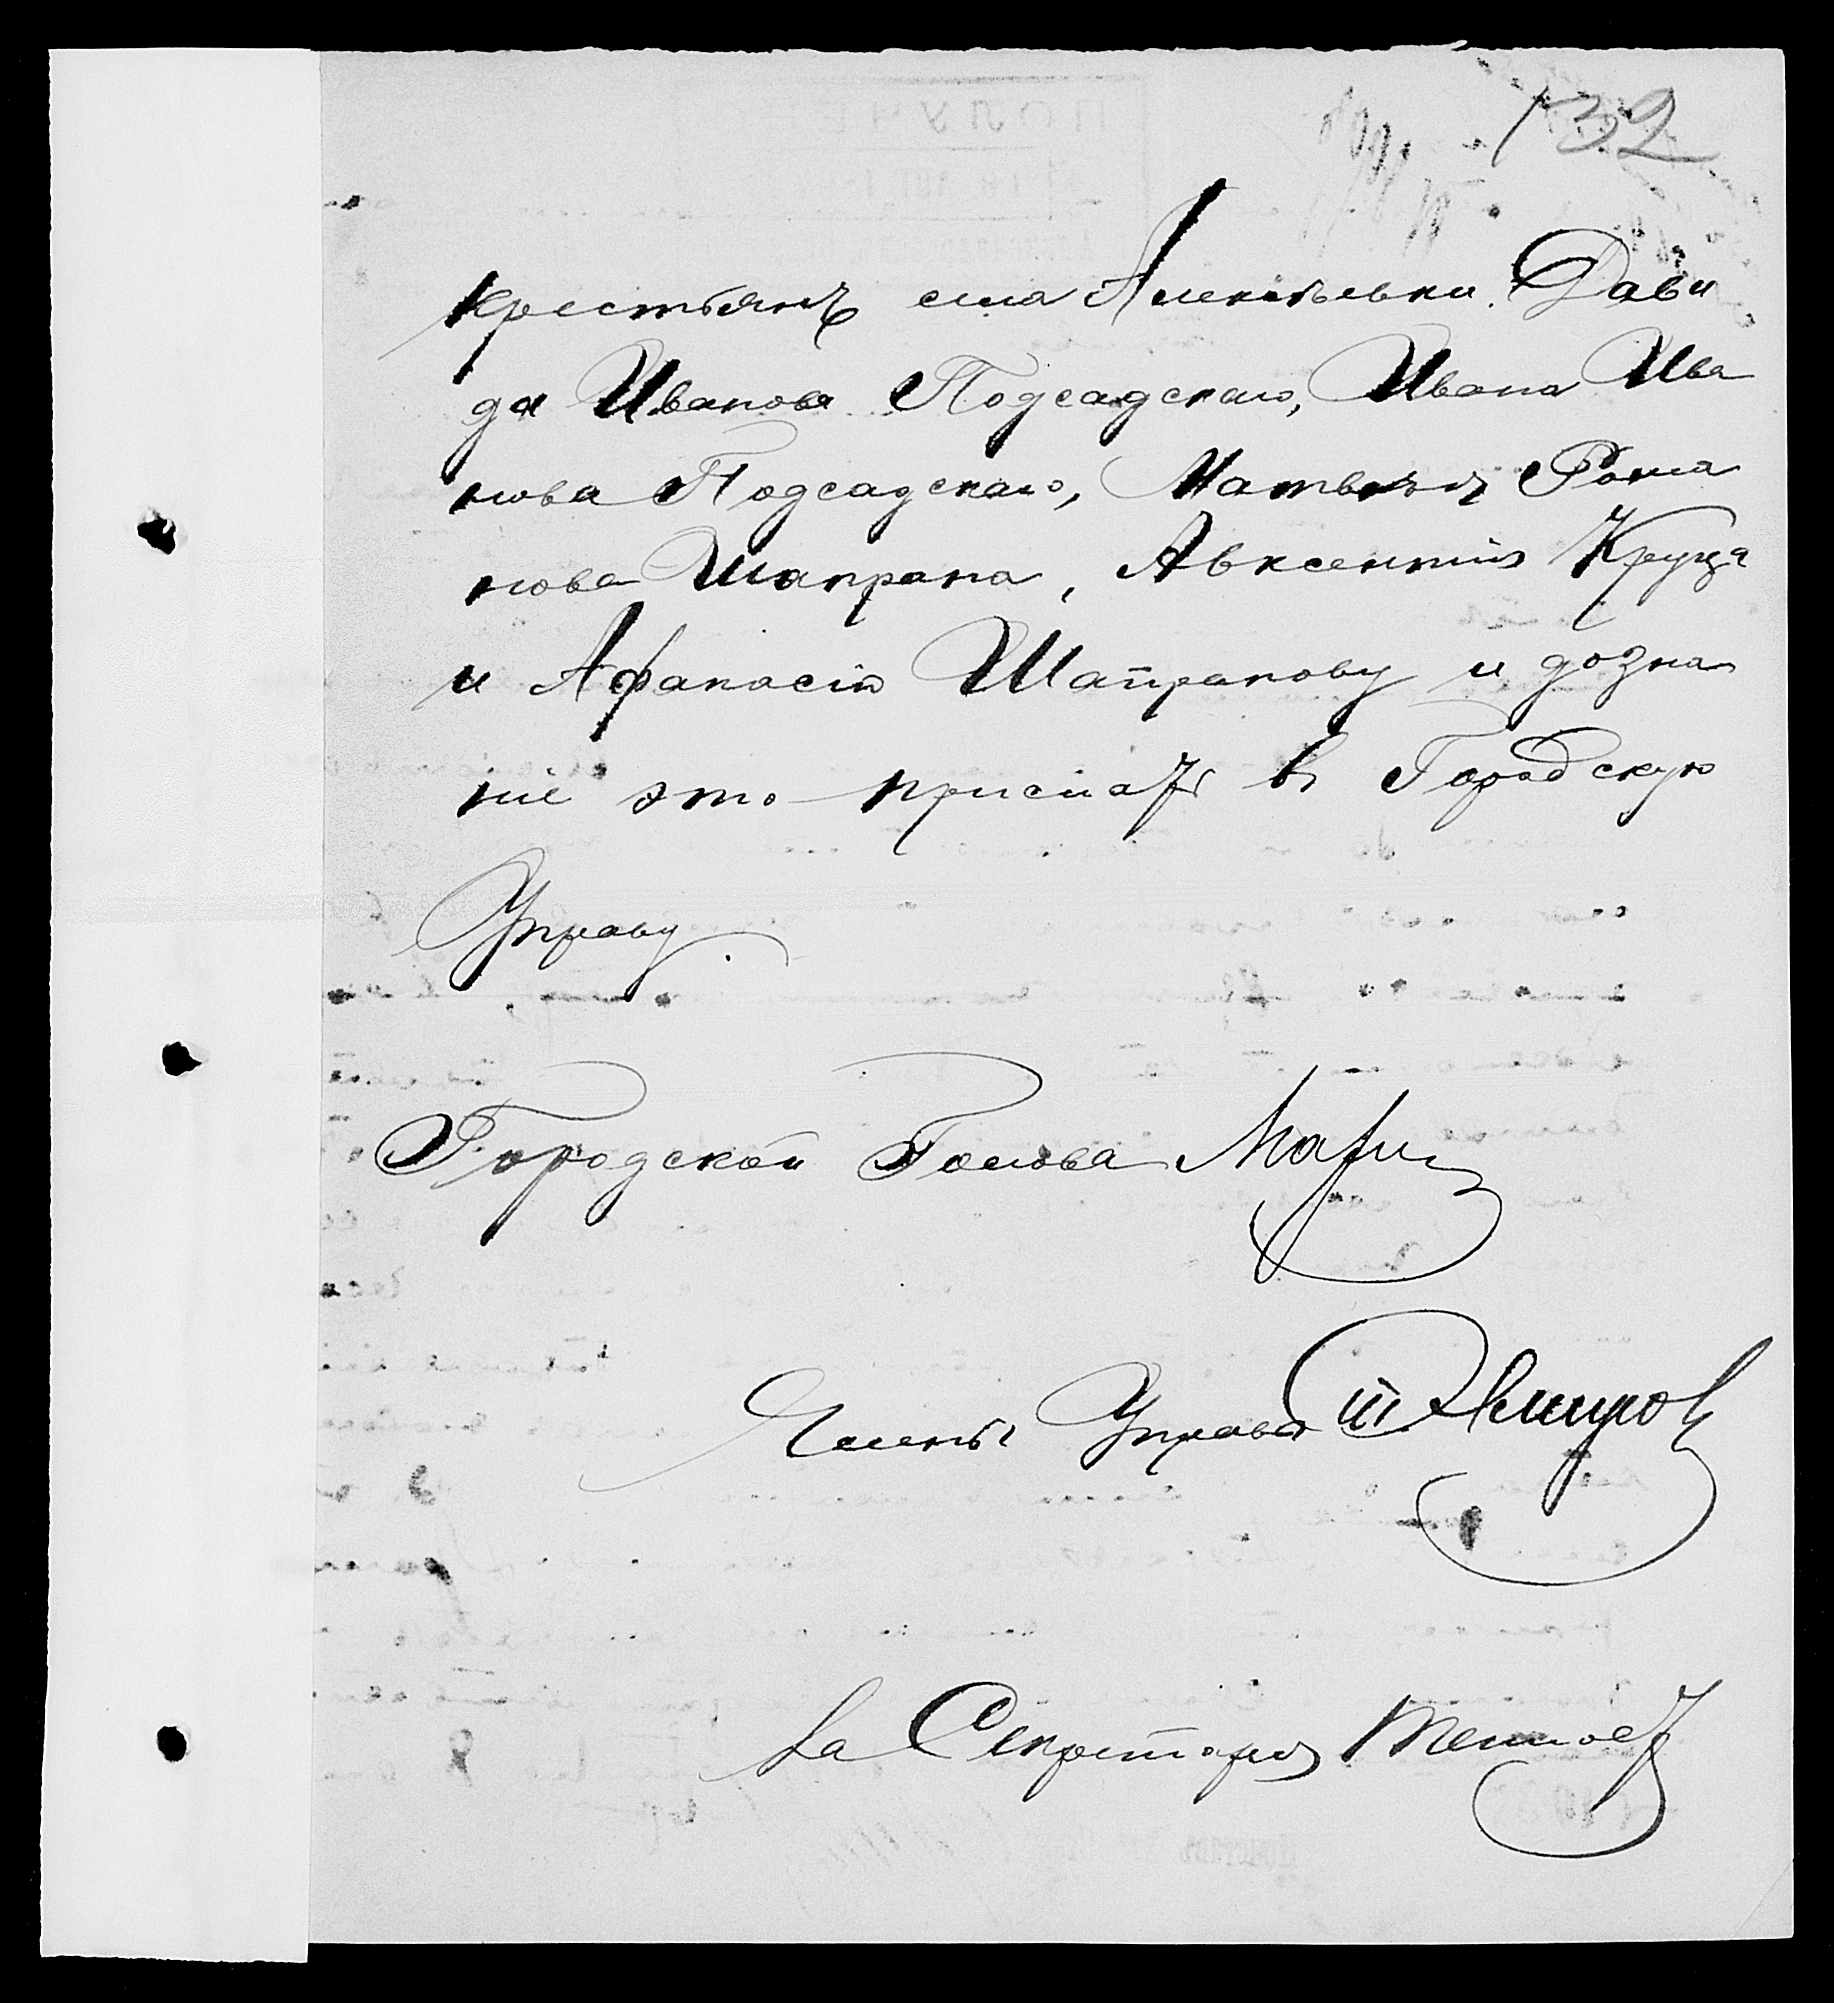 132
крестьянъ села Алексѣевки Дави
да Иванова Подсадскаго, Ивана Ива
нова Подсадскаго, Матвѣя Рома
нова Шапрана, Авксентія Круца
и Афанасія Шапранову и дозна
ніе это прислать въ Городскую
Управу.
Городской Голова
Члены Управы
За Секретаря